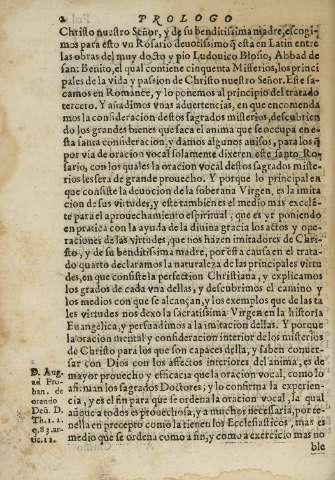 2 PROLOGO
Christo nuestro Señor, y de su benditissima madre, escogi-
mos para esto vn Rosario deuotissimo q̃ esta en Latin entre
las obras del muy docto y pio Ludouico Blosio, Abbad de
san Benito, el qual contiene cinquenta Misterios, los princi
pales de la vida y passion de Christo nuestro Señor. Este sa-
camos en Romance, y lo ponemos al principio del tratado
tercero. Y añadimos vnas aduertencias, en que encomenda
mos la consideracion destos sagrados misterios, descubrien
do los grandes bienes que saca el anima que se occupa en es
ta santa consideracion, y damos algunos auisos, para los q̃
por via de oracion vocal solamente dizeren este santo Ro-
sario, con los quales la oracion vocal destos sagrados miste-
rios les sera de grande prouecho. Y porque lo principal en
que consiste la deuocion de la soberana Virgen, es la imita
cion de sus virtudes, y este tambien es el medio mas excelẽ
te para el aprouechamiento espiritual, que es yr poniendo
en pratica con la ayuda de la diuina gracia los actos y ope-
raciones de las virtudes, que nos hazen imitadores de Chri-
sto, y de su benditissima madre, por esta causa en el trata-
do quarto declaramos la naturaleza de las principales virtu
des, en que consiste la perfection Christiana, y explicamos
los grados de cada vna dellas, y descubrimos el camino y
los medios con que se alcançan, y los exemplos que de las ta
les virtudes nos dexo la sacratissima Virgen en la historia
Euangelica, y persuadimos a la imitacion dellas. Y porque
la oracion mental y consideracion interior de los misterios
de Christo para los que son capaces della, y saben conuer-
sar con Dios con los affectos interiores del anima, es de
mayor prouecho y efficacia que la oracion vocal, como lo
afirman los sagrados Doctores; y lo confirma la experien-
cia, y es el fin para que se ordena la oracion vocal, la qual
aũque a todos es prouechosa, y a muchos necessaria, por te-
nella en precepto como la tienen los Ecclesiasticos, mas es
medio que se ordena como a fin, y como a exercicio mas no
ble
D. Aug.
ad Pro-
ban. de
orando
Deũ. D.
Th. 2. 2.
q. 83. ar-
tic. 12.